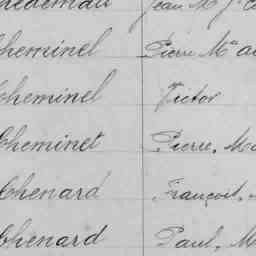 Jean M
Cheminel Pierre Ma
Cheminel Victor
Cheminet Pierre, Ma
Chenard François,
Chenard Paul, M